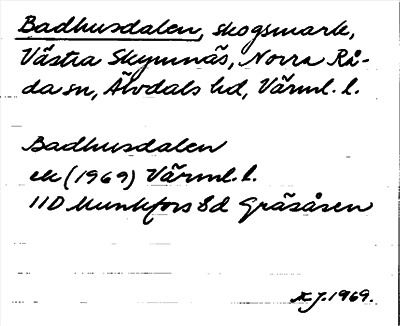 Badhusdalen, skogsmark,
Västra Skymnäs, Norra Rå-
da sn, Älvdals hd, Värml. l.
Badhusdalen
ek (1969) Värml. l.
11D Munkfors 8d Gräsåsen
1969.